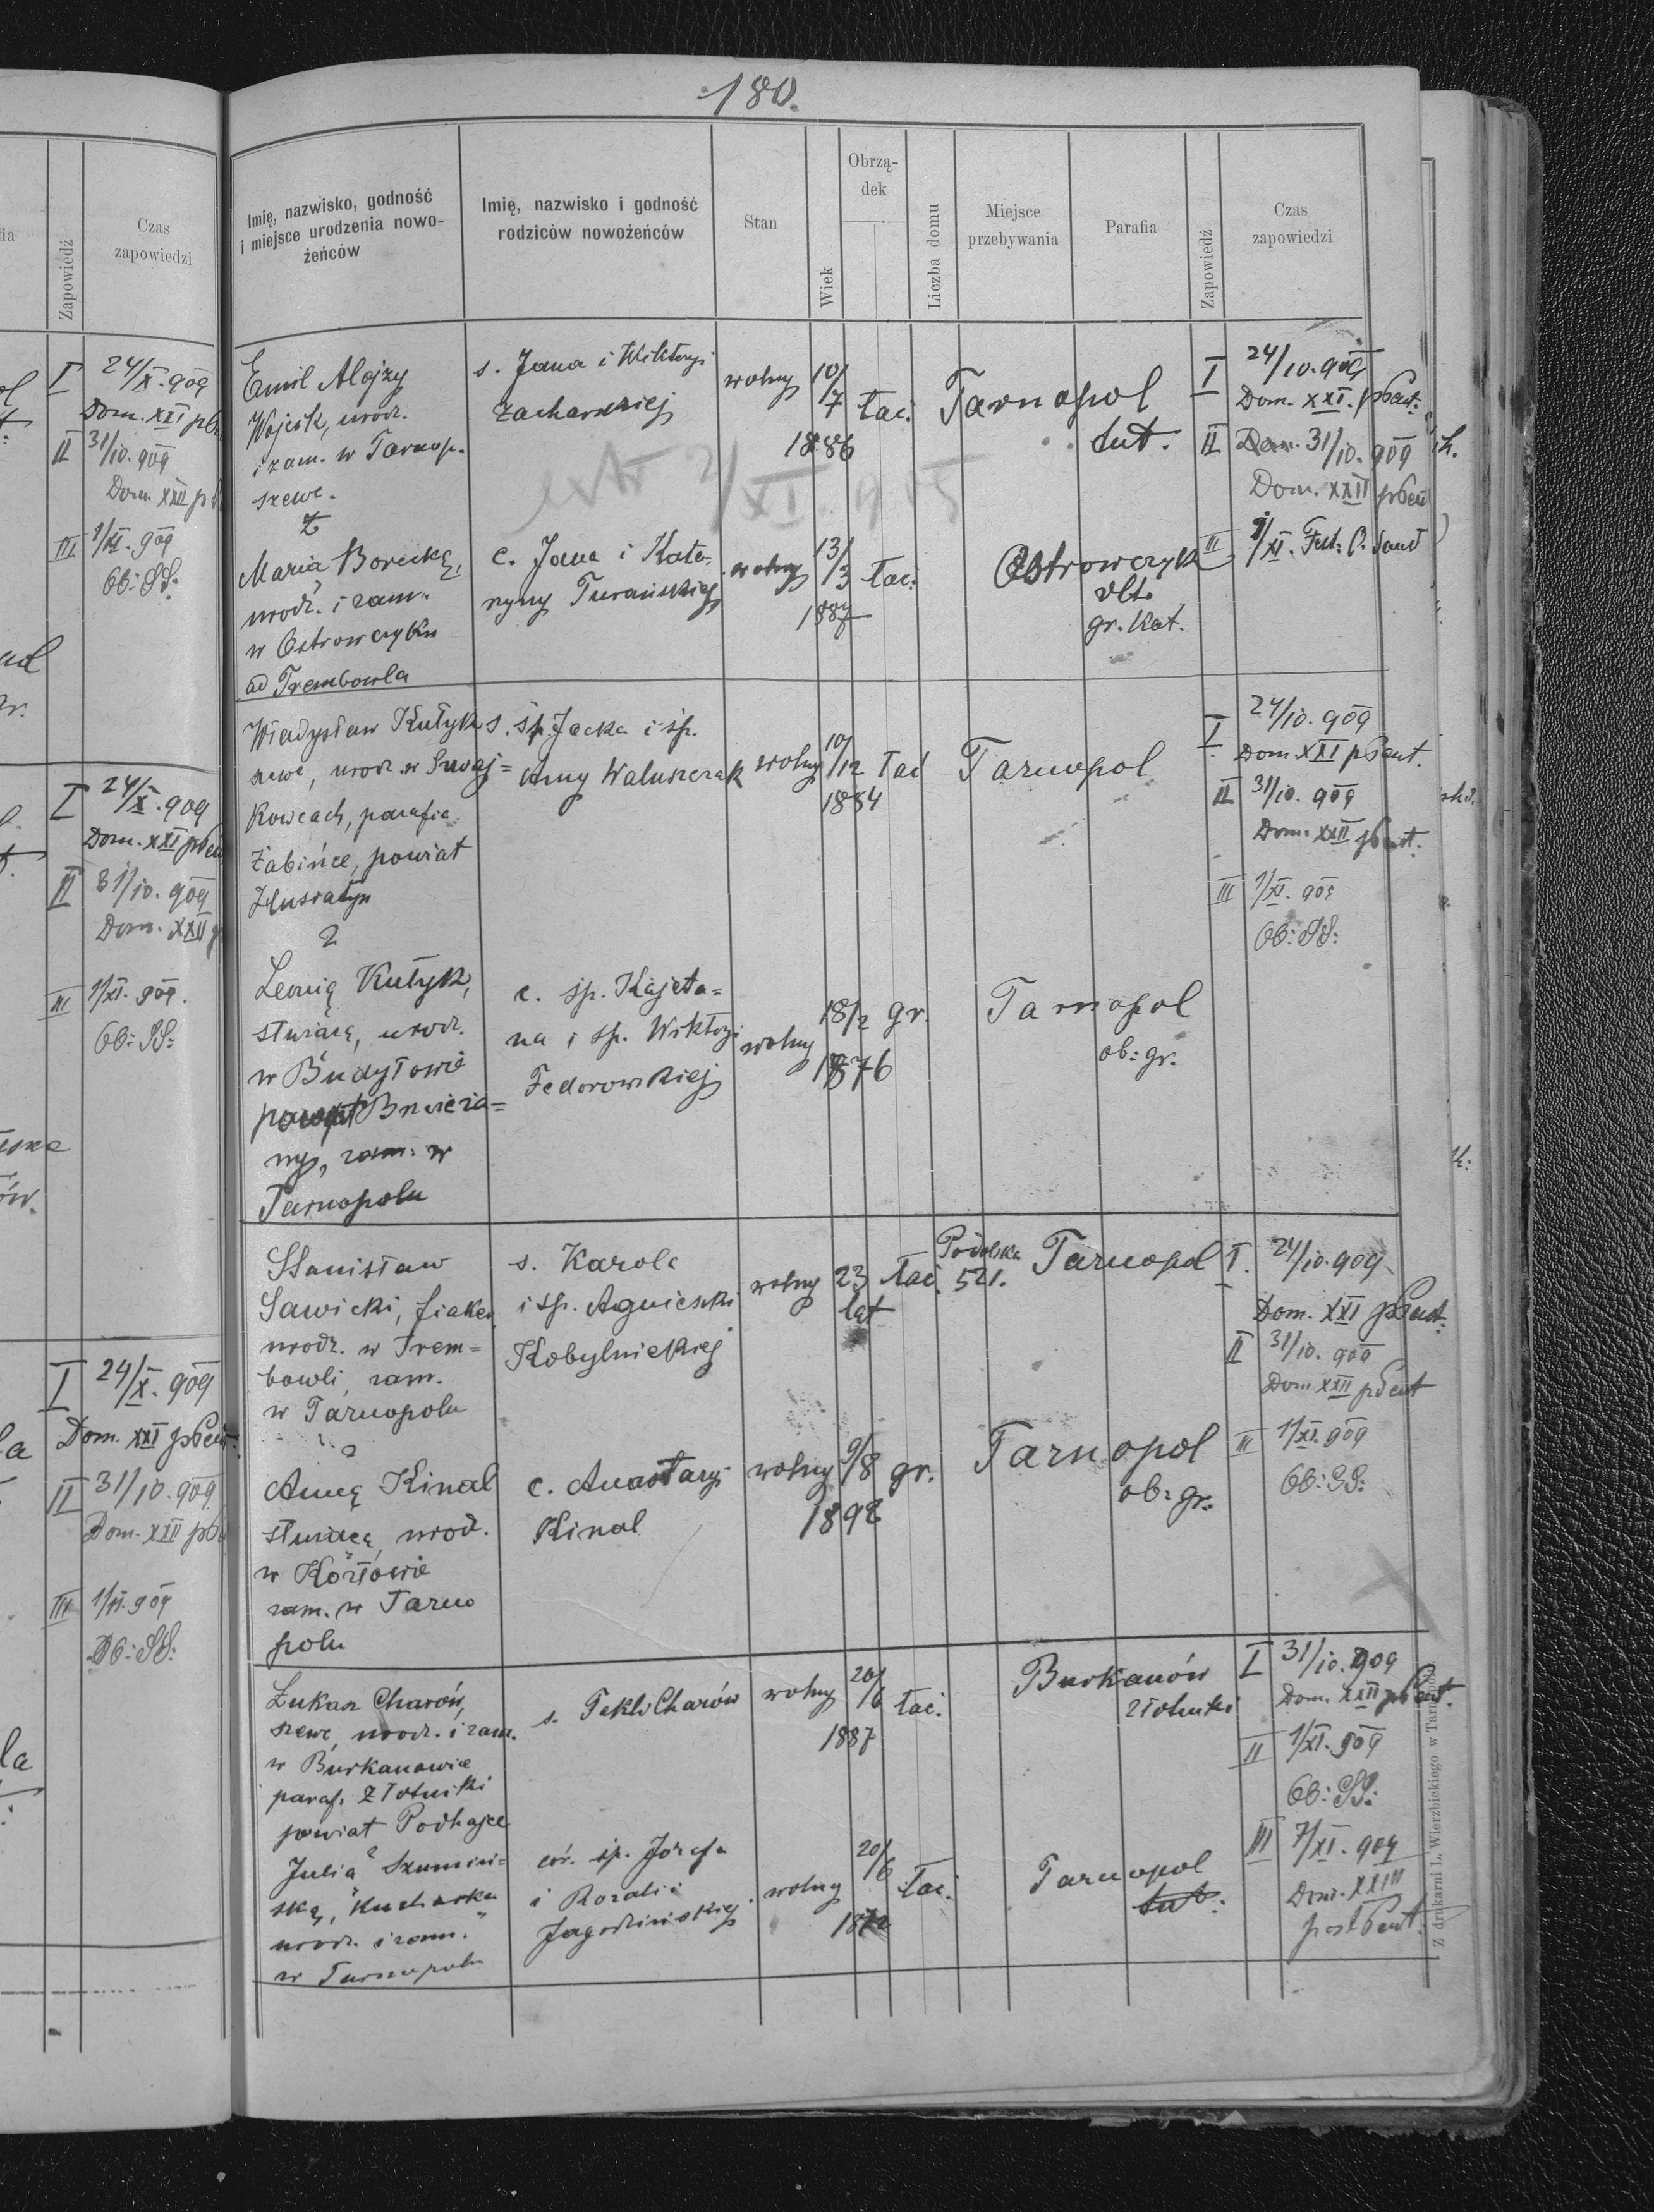 180.
Imię, nazwisko, godność
i miejsce urodzenia nowo-
żeńców
Imię, nazwisko i godność
rodziców nowożeńców
Stan
Wiek
Obrzą-
dek
Liczba domu
Miejsce
przebywania
Parafia
Zapowiedź
Czas
zapowiedzi
Zapowiedź
Czas
zapowiedzi
I 24/X. 909
Dom. XXI
II 31/10. 909
Dom. XXII
III 1/XI. 909
Ob: SS:
I 24/X. 909
Dom. XXI
II 31/10. 909
Dom. XXII
III 1/XI. 909.
Ob: SS:
I 24/X. 909
Dom. XXI
II 31/10. 909
Dom. XXII
III 1/XI. 909
Ob: SS:
Emil Alojzy
Wójcik, urodz.
i zam. w Tarnop.
szewc.
z
Maria Borecką,
urodz. i zam.
w Ostrowczyku
ad Trembowla
s. Jana i Wiktoryi
Zacharskiej
wolny
10/7
1886
łac.
Tarnopol
tut.
I 24/10. 909
Dom. XXI. pPent.
II 31/10. 909
Dom. XXII pPent
c. Jana i Kata-
rzyny Turańskiej
wolny
13/3
1887
łac.
Ostrowczyk
gr. kat.
III 1/XI. Fest: O. Sanct
Władysław Kutyk
szewc, urodz. w Suchaj=
kowcach, parafia
Żabińce, powiat
Husiatyn
z
s. śp. Jacka i śp.
Anny Waluszczak
wolny
10/12
1884
łac
Tarnopol
I 24/10. 909
Dom. XXI pPent.
II 31/10. 909
Dom. XXII pPent.
III 1/XI. 909
Ob: SS:
Leonią Kutyk,
służącą, urodz.
w Budyłowie
powiat Brzeża=
ny, zam. w
Tarnopolu
c. śp. Kajeta=
na i śp. Wiktoryi
Fedorowskiej
wolny
18/2
1876
gr.
Tarnopol
ob: gr.
Stanisław
Sawicki, fiaker
urodz. w Trem=
bowli, zam.
w Tarnopolu
z
s. Karola
i śp. Agnieszki
Kobylnickiej
wolny
23
lat
łac.
Podolska
521.
Tarnopol
I. 24/10. 909
Dom. XXI pPent.
II 31/10. 909
Dom XXII pPent
III 1/XI. 909
Ob: SS:
Anną Kinal
służącą, urodz.
w Kozłowie
zam. w Tarno
polu
c. Anastazyi
Kinal
wolny
9/8
1892
gr.
Tarnopol
ob: gr.
Łukasz Charów,
szewc, urodz. i zam.
w Burkanowie
paraf. Złotniki
powiat Podhajce
z
s. Tekli Charów
wolny
20/6
1887
łac.
Burkanów
Złotniki
I 31/10. 909
Dom. XXII pPent.
II 1/XI. 909
Ob: SS:
III 7/XI. 909
Dom. XXIII
post Pent.
Julią Szumiń=
ską, kucharka
urodz. i zam.
w Tarnopolu
cór. śp. Józefa
i Rozalii
Jagodzińskiej
wolny
20/6
łac.
Tarnopol
tut.
Z drukarni L. Wierzbickiego w Tarnopolu